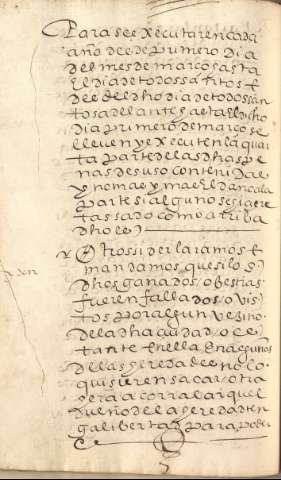 Para see xecutar en cada
año desde primero dia
del mes de março fasta
El dia de todos santos E
desde el dho dia de todos san
tos adelante fasta el dicho
dia primero de março se
lleuen y executen la quar
ta parte de las dhas pe
nas de suso contenidas
y no mas y mas El daño a la
parte si alguno se hiziere
tassado como arriba
dho es
Otrossi declaramos E
mandamos que si los
dhos ganados o bestias
fueren fallados o vis
tos por algun vezino
de la dha ciudad o
tante En ella En algunos
de las heredades no lo
quisieren sacar otra
a corral a quel
dueño de la heredad ten
ga libertad para poder